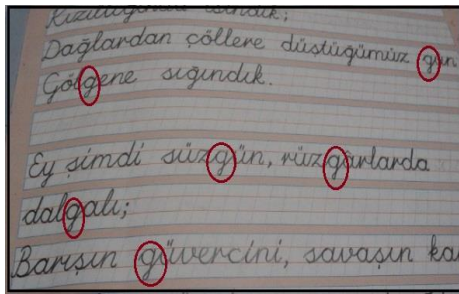 Kızıllığında ısındık;
Dağlardan çöllere düştüğümüz gün
Gölgene sığındık.
Ey şimdi süzgün, rüzgârlarda
dalgalı;
Barışın güvercini, savaşın